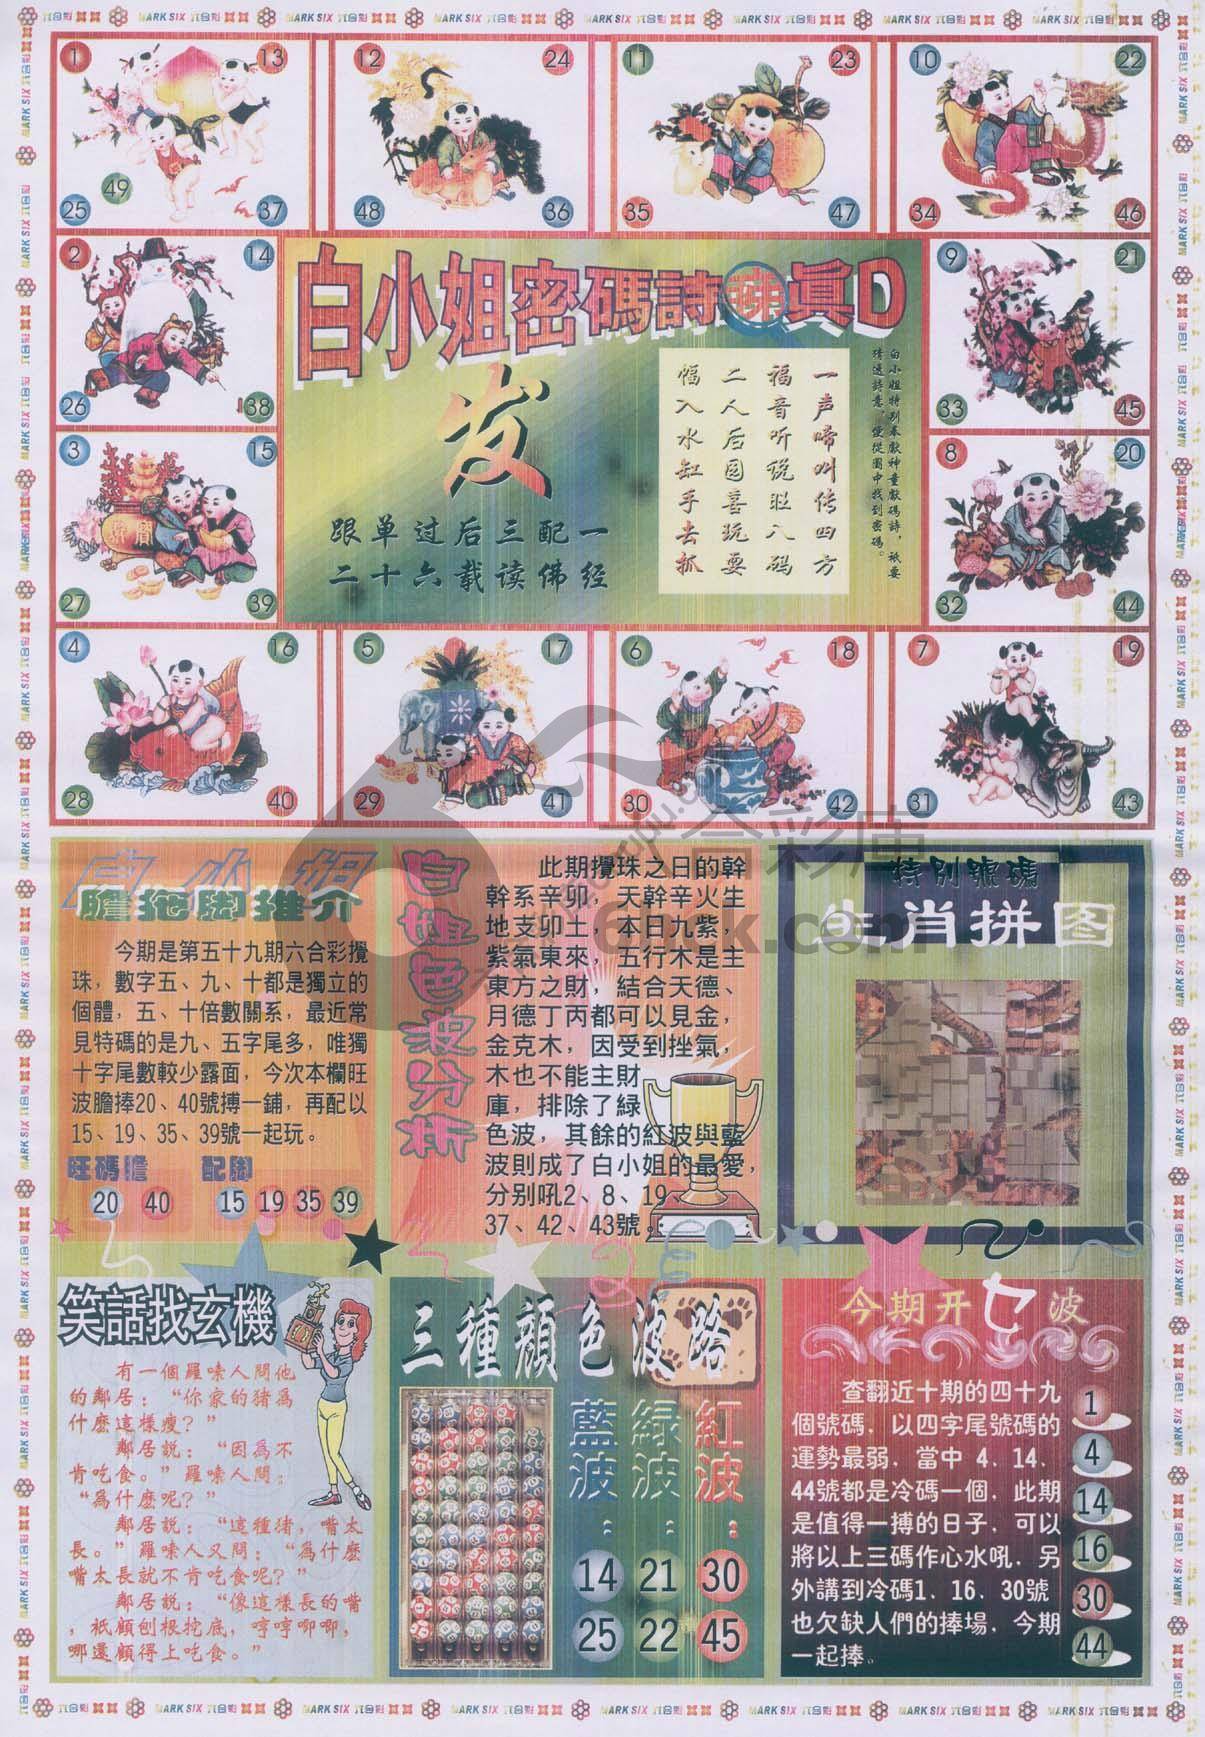 1 13 25 37 49
12 24 36 48
11 23 35 47
10 22 34 46
2 14 26 38
9 21 33 45
3 15 27 39
8 20 32 44
4 16 28 40
5 17 29 41
6 18 30 42
7 19 31 43
白小姐密碼詩 眞D
发
跟单过后三配一
二十六载读佛经
一声啼叫传四方
福音听说旺八码
二人后园喜玩耍
幅入水缸手去抓
白小姐特别奉獻神童獻碼詩，祇要
猜透詩意，便從圖中找到密碼。
白小姐
膽拖脚推介
今期是第五十九期六合彩攪
珠，數字五、九、十都是獨立的
個體，五、十倍數關系，最近常
見特碼的是九、五字尾多，唯獨
十字尾數較少露面，今次本欄旺
波膽捧20、40號搏一鋪，再配以
15、19、35、39號一起玩。
旺碼膽 配脚
20 40 15 19 35 39
白姐色波分析
此期攪珠之日的幹
幹系辛卯，天幹辛火生
地支卯土，本日九紫，
紫氣東來，五行木是主
東方之財，結合天德、
月德丁丙都可以見金，
金克木，因受到挫氣，
木也不能主財
庫，排除了綠
色波，其餘的紅波與藍
波則成了白小姐的最愛，
分别吼2、8、19、
37、42、43號。
特别號碼
生肖拼图
笑話找玄機
有一個羅嗦人問他
的鄰居：“你家的猪爲
什麽這樣瘦？”
鄰居説：“因爲不
肯吃食。”羅嗦人問：
“爲什麽呢？”
鄰居説：“這種猪，嘴太
長。”羅嗦人又問：“爲什麽
嘴太長就不肯吃食呢？”
鄰居説：“像這樣長的嘴
，祇顧刨根挖底，哼哼唧唧，
哪還顧得上吃食。”
三種顔色波路
藍波：
14
25
緑波：
21
22
紅波：
30
45
今期开七波
查翻近十期的四十九
個號碼，以四字尾號碼的
運勢最弱，當中 4、14、
44號都是冷碼一個，此期
是值得一搏的日子，可以
將以上三碼作心水吼，另
外講到冷碼1、16、30號
也欠缺人們的捧場，今期
一起捧。
1
4
14
16
30
44
MARK SIX 六合彩